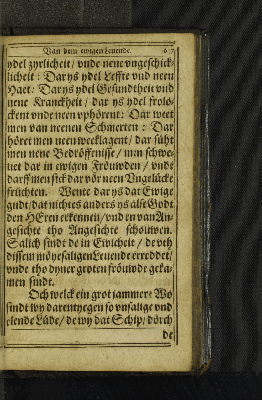 Van dem ewigen Leuende. 67
ydel zyrlicheit / vnde nene vngeschick-
licheit: Dar ys ydel Leffte vnd neen
Haet: Dar ys ydel Gesundtheit vnd
nene Kranckheit / dar ys ydel frolo-
ckent vnde neen vphörent: Dar weet
men van neenen Schmerten: Dar
höret men neen weeklagent / dar süht
men nene Bedröffenisse / man schwe-
uet dar in ewigen Fröuwden / vnde
darff men sick dar vör neen Vngelücke
früchten. Wente dar ys dat Ewige
gudt / dat nichtes anders ys alse Godt
den HEren erkennen / vnd en van An-
gesichte tho Angesichte schouwen.
Salich sindt de in Ewicheit / de vth
dissem möyesaligen Leuende erreddet /
vnde tho dyner groten fröuwde geka-
men sindt.
Och welck ein grot jammer: Wo
sindt wy darentyegen so vnsalige vnd
elende Lüde / de wy dat Schip / dörch
de